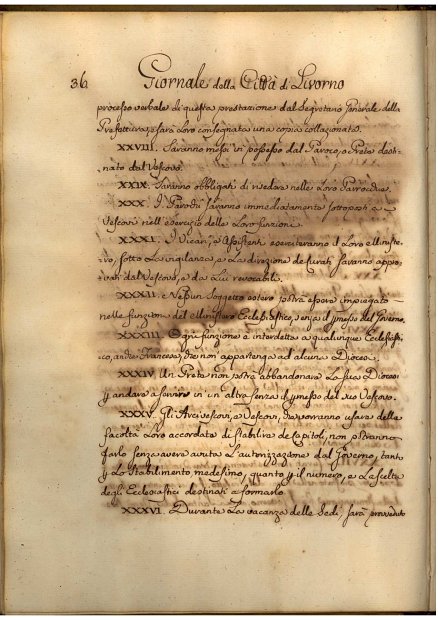 36 Giornale della Città di Livorno
processo verbale di questa prestazione dal Segretario Generale della
Prefettura, e sarà Loro consegnata una copia collazionata.
XXVIII. Saranno messi in possesso dal Paroco, o Prete desti-
nato dal Vescovo.
XXIX. Saranno obbligati di risedere nelle Loro Parrocchie.
XXX. I Parochi saranno immediatamente sottoposti a
Vescovi nell'esercizio delle Loro funzioni.
XXXI. I Vicari, e Assistenti eserciteranno il Loro Ministe-
ro, sotto La vigilanza, e La direzione de Curati saranno appro-
vati dal Vescovo, e da Lui revocabili.
XXXII. Nessun Soggetto estero potrà essere impiegato
nelle funzioni del Ministero Ecclesiastico, senza il pmesso del Governo.
XXXIII. Ogni funzione è interdetta a qualunque Ecclesiasti-
co, anche Francese, che non appartenga ad alcuna Diocesi.
XXXIV Un Prete non potrà abbandonare La sua Diocesi
p andare a servire in un altra senza il pmesso del suo Vescovo.
XXXV. Gli Arcivescovi, e Vescovi, che vorranno usare della
facoltà Loro accordata di stabilire de Capitoli, non potranno
farlo senza avere avuta L'autorizzazione dal Governo, tanto
p Lo Stabilimento medesimo, quanto p il numero, e La scelta
degli Ecclesiastici destinati a formarlo
XXXVI. Durante La vacanza delle Sedi, sarà provveduto